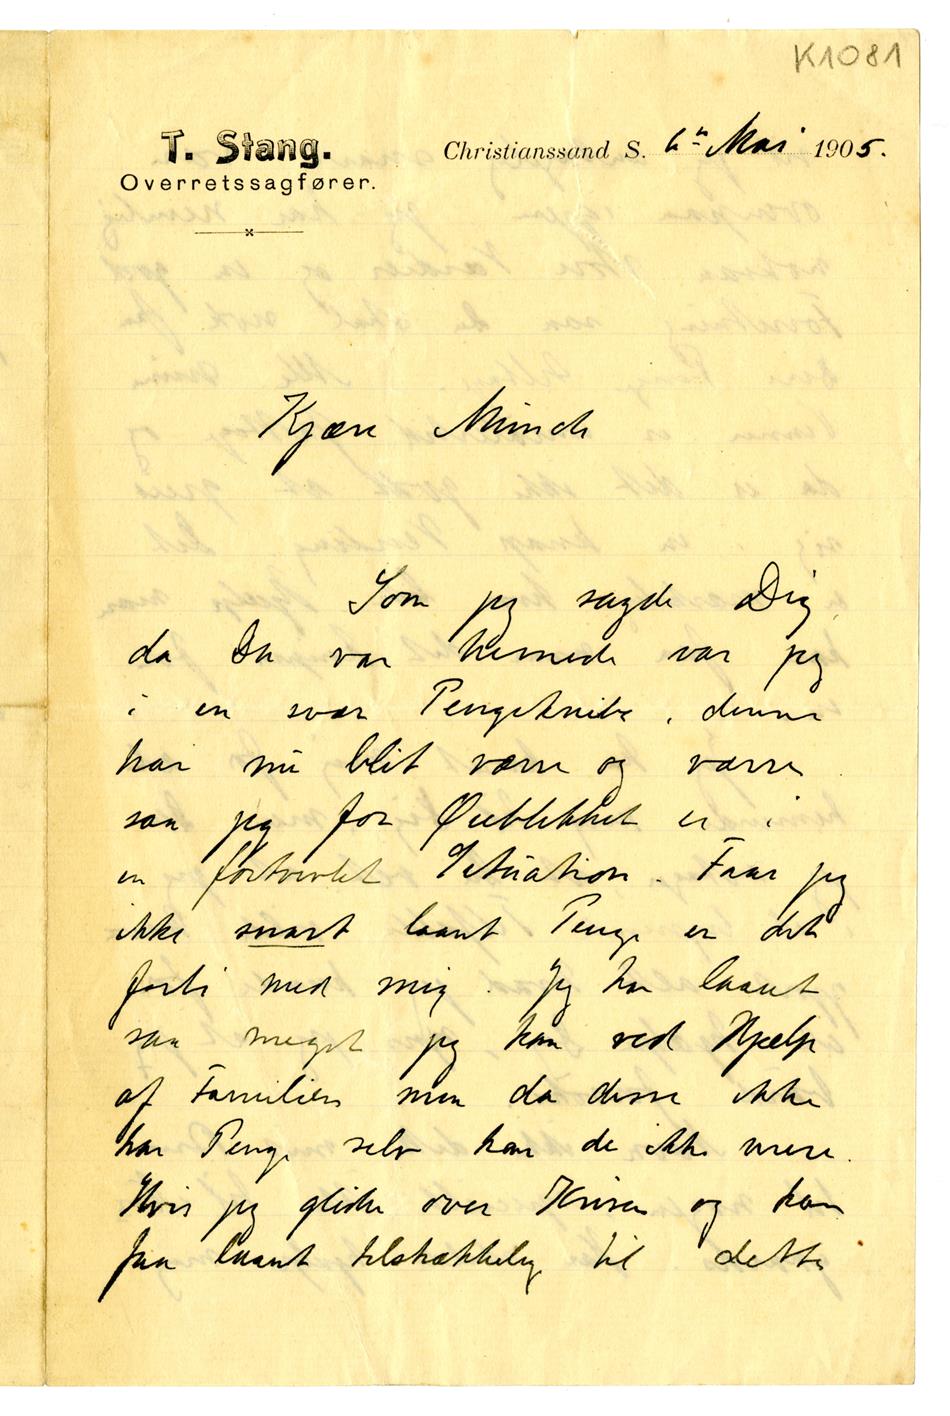 K1081
T. Stang.
Overretssagfører.
Christianssand S. 6te Mai 1905.
Kjære Munch
Som jeg sagde Dig
da Du var hernede var jeg
i en svær Pengeknibe, denne
har nu blit værre og værre
saa jeg for Øieblikket er i
en fortvivlet Situation. Faar jeg
ikke snart laant Penge er det
forbi med mig. Jeg har laant
saa meget jeg kan ved Hjælp
af Familien men da disse ikke
har Penge selv kan de ikke mere.
Hvis jeg glider over Krisen og kan
faa laant tilstrækkelig til dette